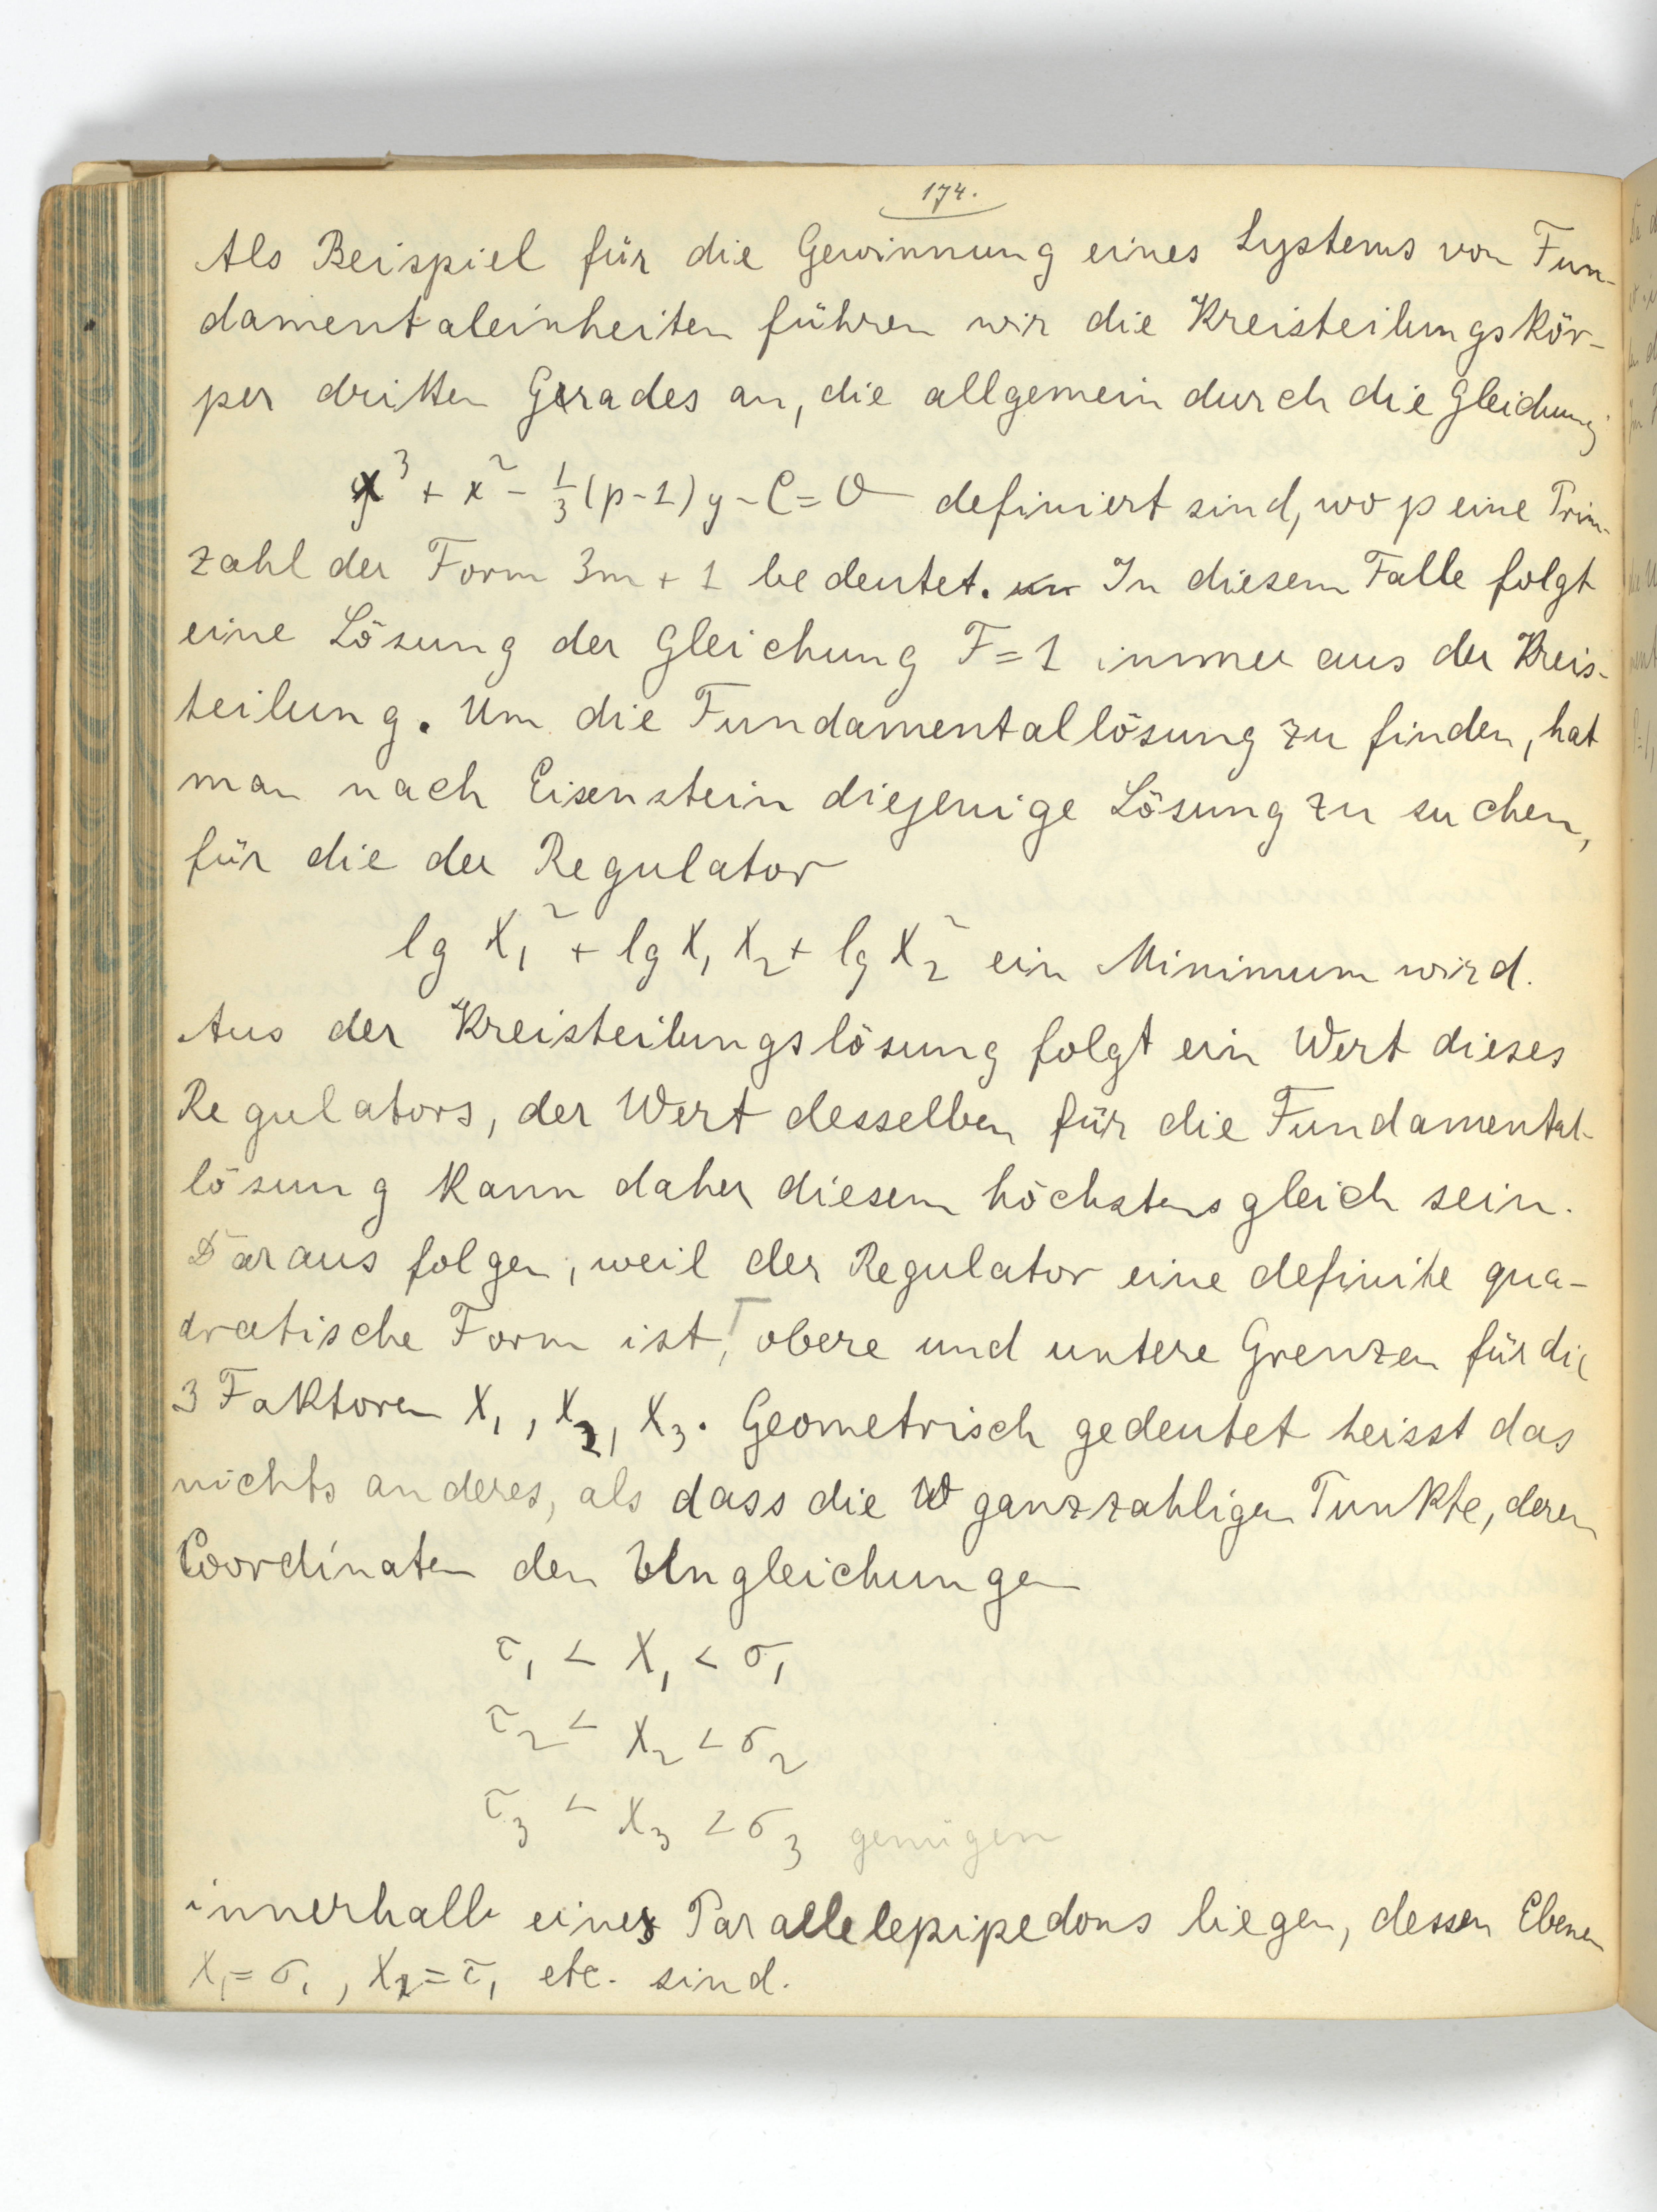 174.
Als Beispiel für die Gewinnung eines Systems von Fun-
damentaleinheiten führen wir die Kreisteilungskör-
per dritten Grades an, die allgemein durch die Gleichung
x³ + x² - 1/3 (p-1) y - C = 0 definiert sind, wo p eine Prim-
zahl der Form 3m + 1 bedeutet. In diesem Falle folgt
eine Lösung der Gleichung F = 1 immer aus der Kreis-
teilung. Um die Fundamentallösung zu finden, hat
man nach Eisenstein diejenige Lösung zu suchen,
für die der Regulator
lg X₁² + lg X₁ X₂ + lg X₂² ein Minimum wird.
Aus der Kreisteilungslösung folgt ein Wert dieses
Regulators, der Wert desselben für die Fundamental-
lösung kann daher diesem höchstens gleich sein.
Daraus folgen, weil der Regulator eine definite qua-
dratische Form ist, obere und untere Grenzen für die
3 Faktoren X₁, X₂, X₃. Geometrisch gedeutet heisst das
nichts anderes, als dass die ganzzahligen Punkte, deren
Coordinaten den Ungleichungen
τ₁ < X₁ < σ₁
τ₂ < X₂ < σ₂
τ₃ < X₃ < σ₃ genügen
innerhalb eines Parallelepipedons liegen, dessen Ebenen
X₁ = σ₁, X₁ = τ₁ etc. sind.